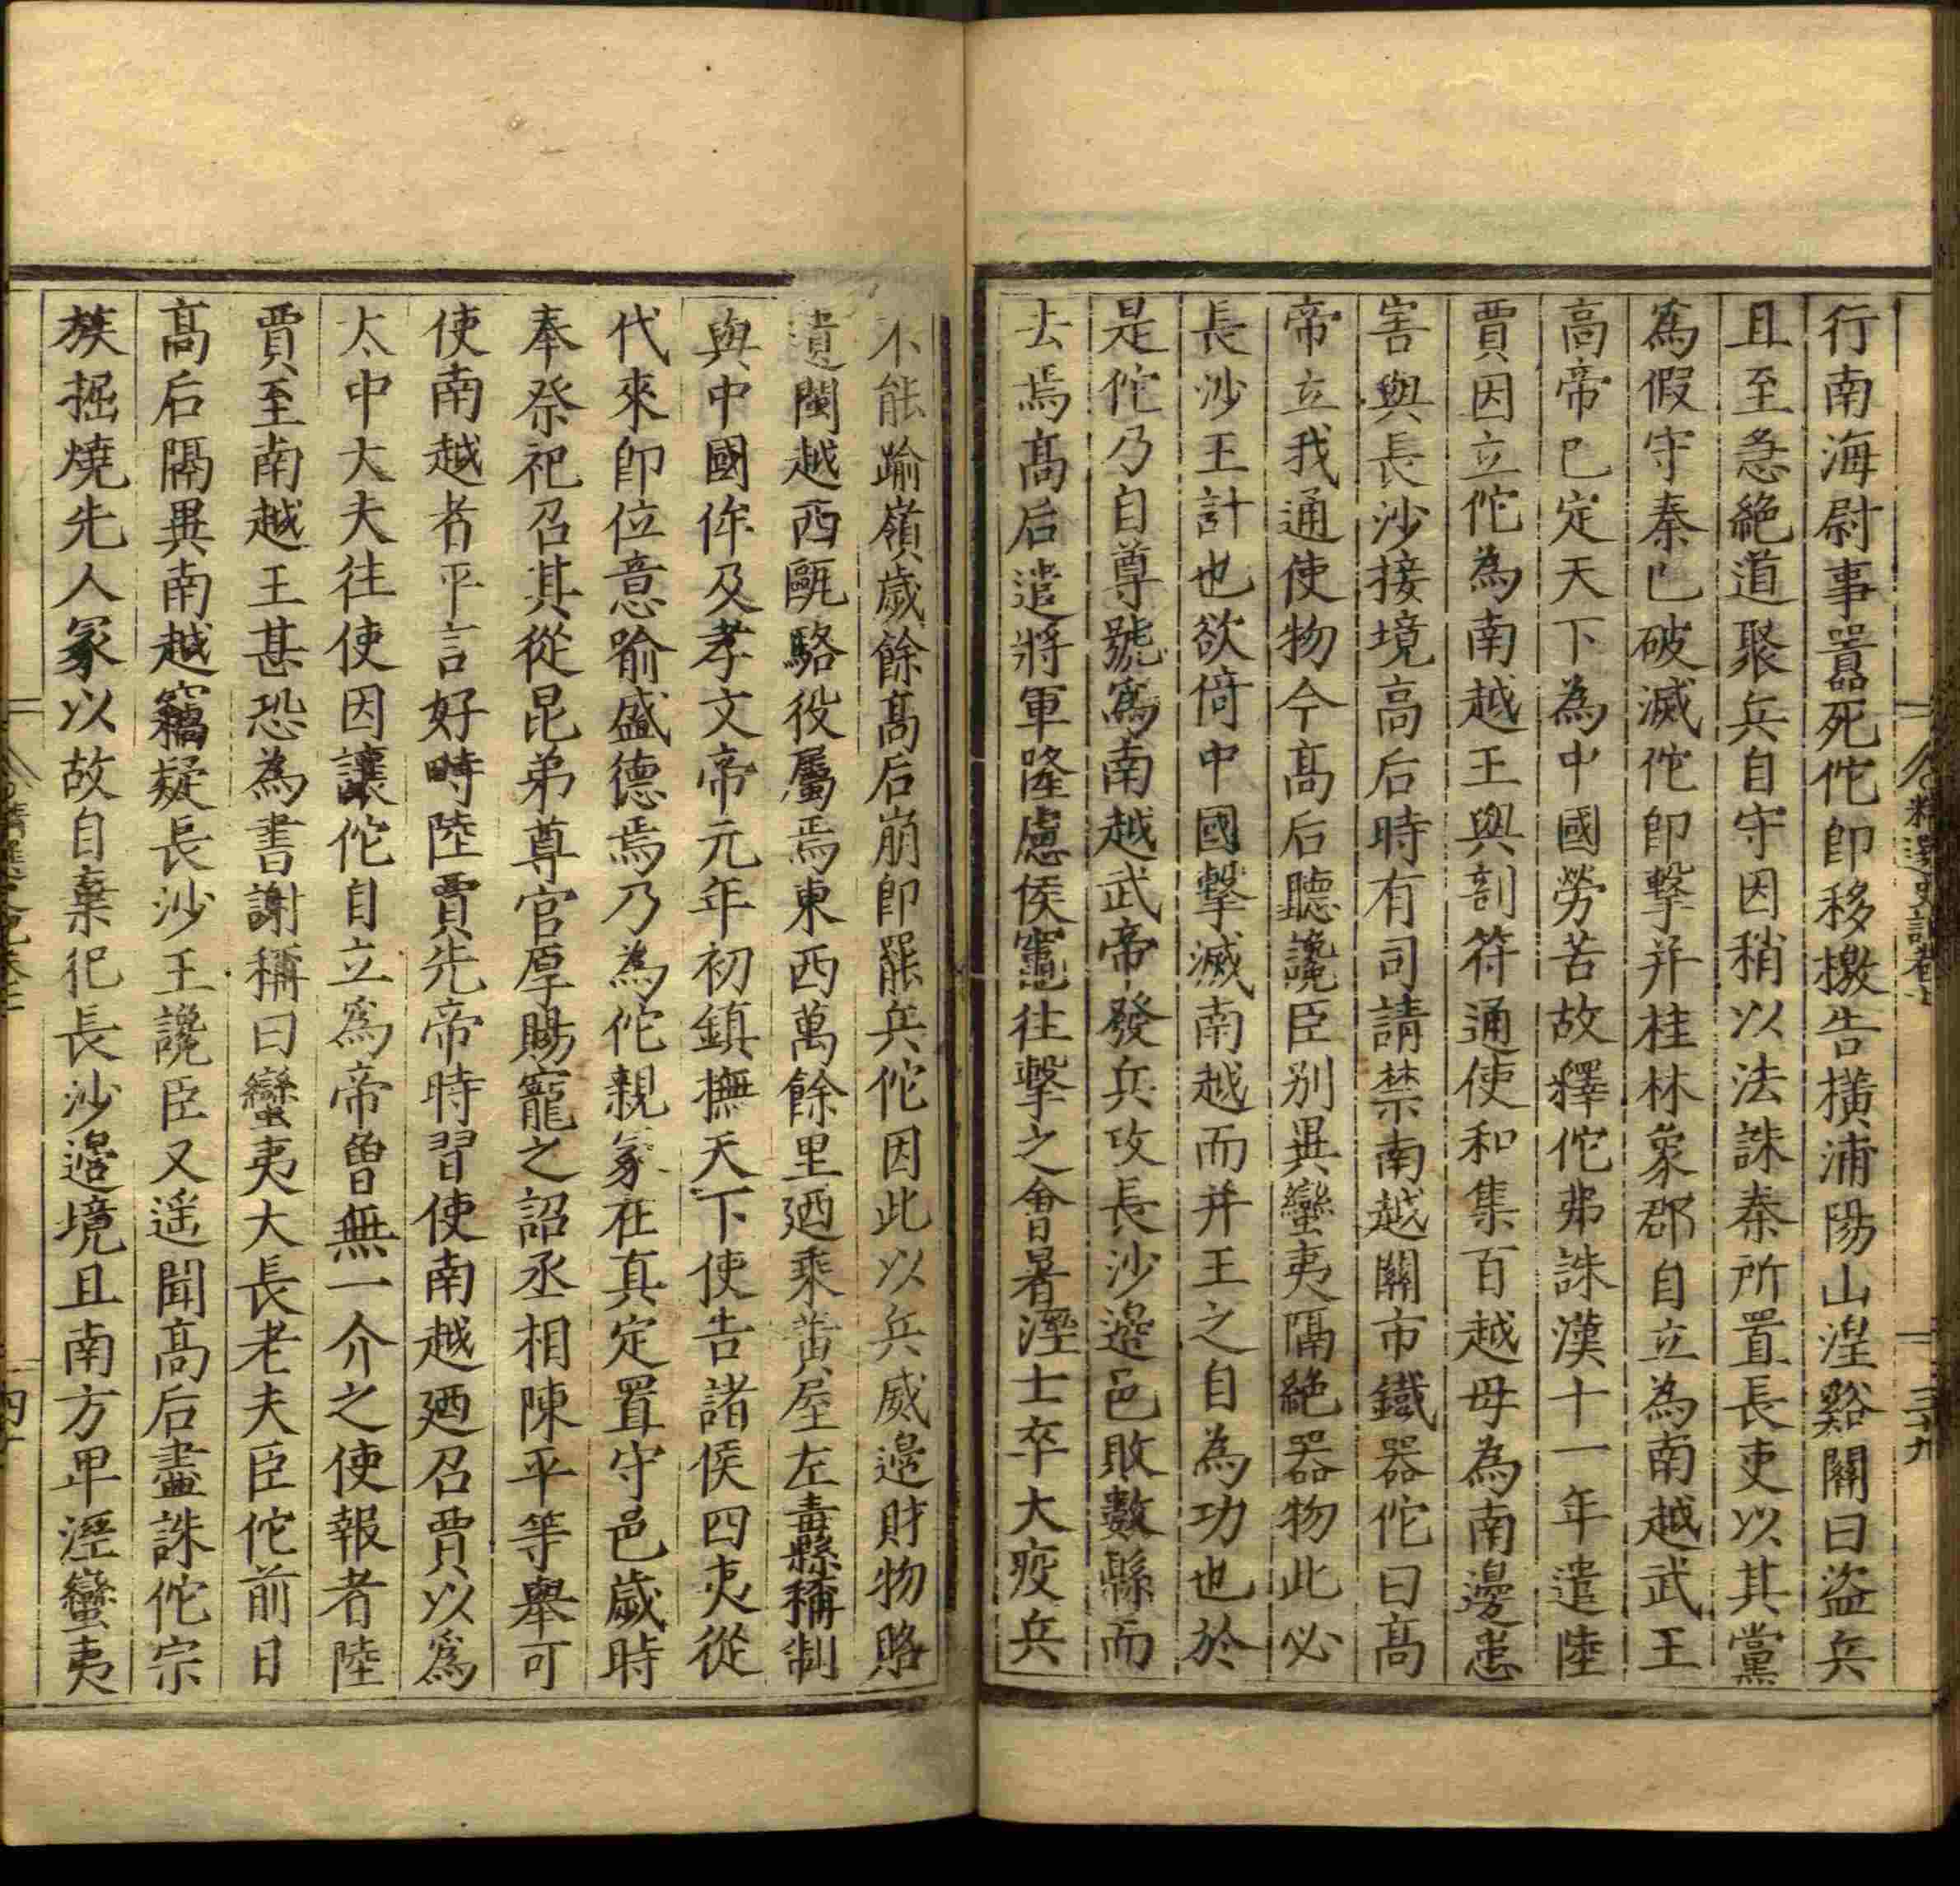 行南海尉事囂死佗即移檄告橫浦陽山湟谿關曰盜兵
且至急絕道聚兵自守因稍以法誅秦所置長吏以其黨
為假守秦已破滅佗即擊并桂林象郡自立為南越武王
高帝已定天下為中國勞苦故釋佗弗誅漢十一年遣陸
賈因立佗為南越王與剖符通使和集百越毋為南邊患
害與長沙接境高后時有司請禁南越關市鐵器佗曰高
帝立我通使物今高后聽讒臣別異蠻夷隔絕器物此必
長沙王計也欲倚中國擊滅南越而并王之自為功也於
是佗乃自尊號為南越武帝發兵攻長沙邊邑敗數縣而
去焉高后遣將軍隆慮侯竈往擊之會暑溼士卒大疫兵
不能踰嶺歲餘高后崩即罷兵佗因此以兵威邊財物賂
遺閩越西甌駱役屬焉東西萬餘里廼乘黃屋左纛稱制
與中國侔及孝文帝元年初鎮撫天下使告諸侯四夷從
代來即位意喻盛德焉乃為佗親冢在真定置守邑歲時
奉祭祀召其從昆弟尊官厚賜寵之詔丞相陳平等舉可
使南越者平言好畤陸賈先帝時習使南越廼召賈以為
太中大夫往使因讓佗自立為帝曾無一介之使報者陸
賈至南越王甚恐為書謝稱曰蠻夷大長老夫臣佗前日
高后隔異南越竊疑長沙王讒臣又遙聞高后盡誅佗宗
族掘燒先人冢以故自棄犯長沙邊境且南方卑溼蠻夷